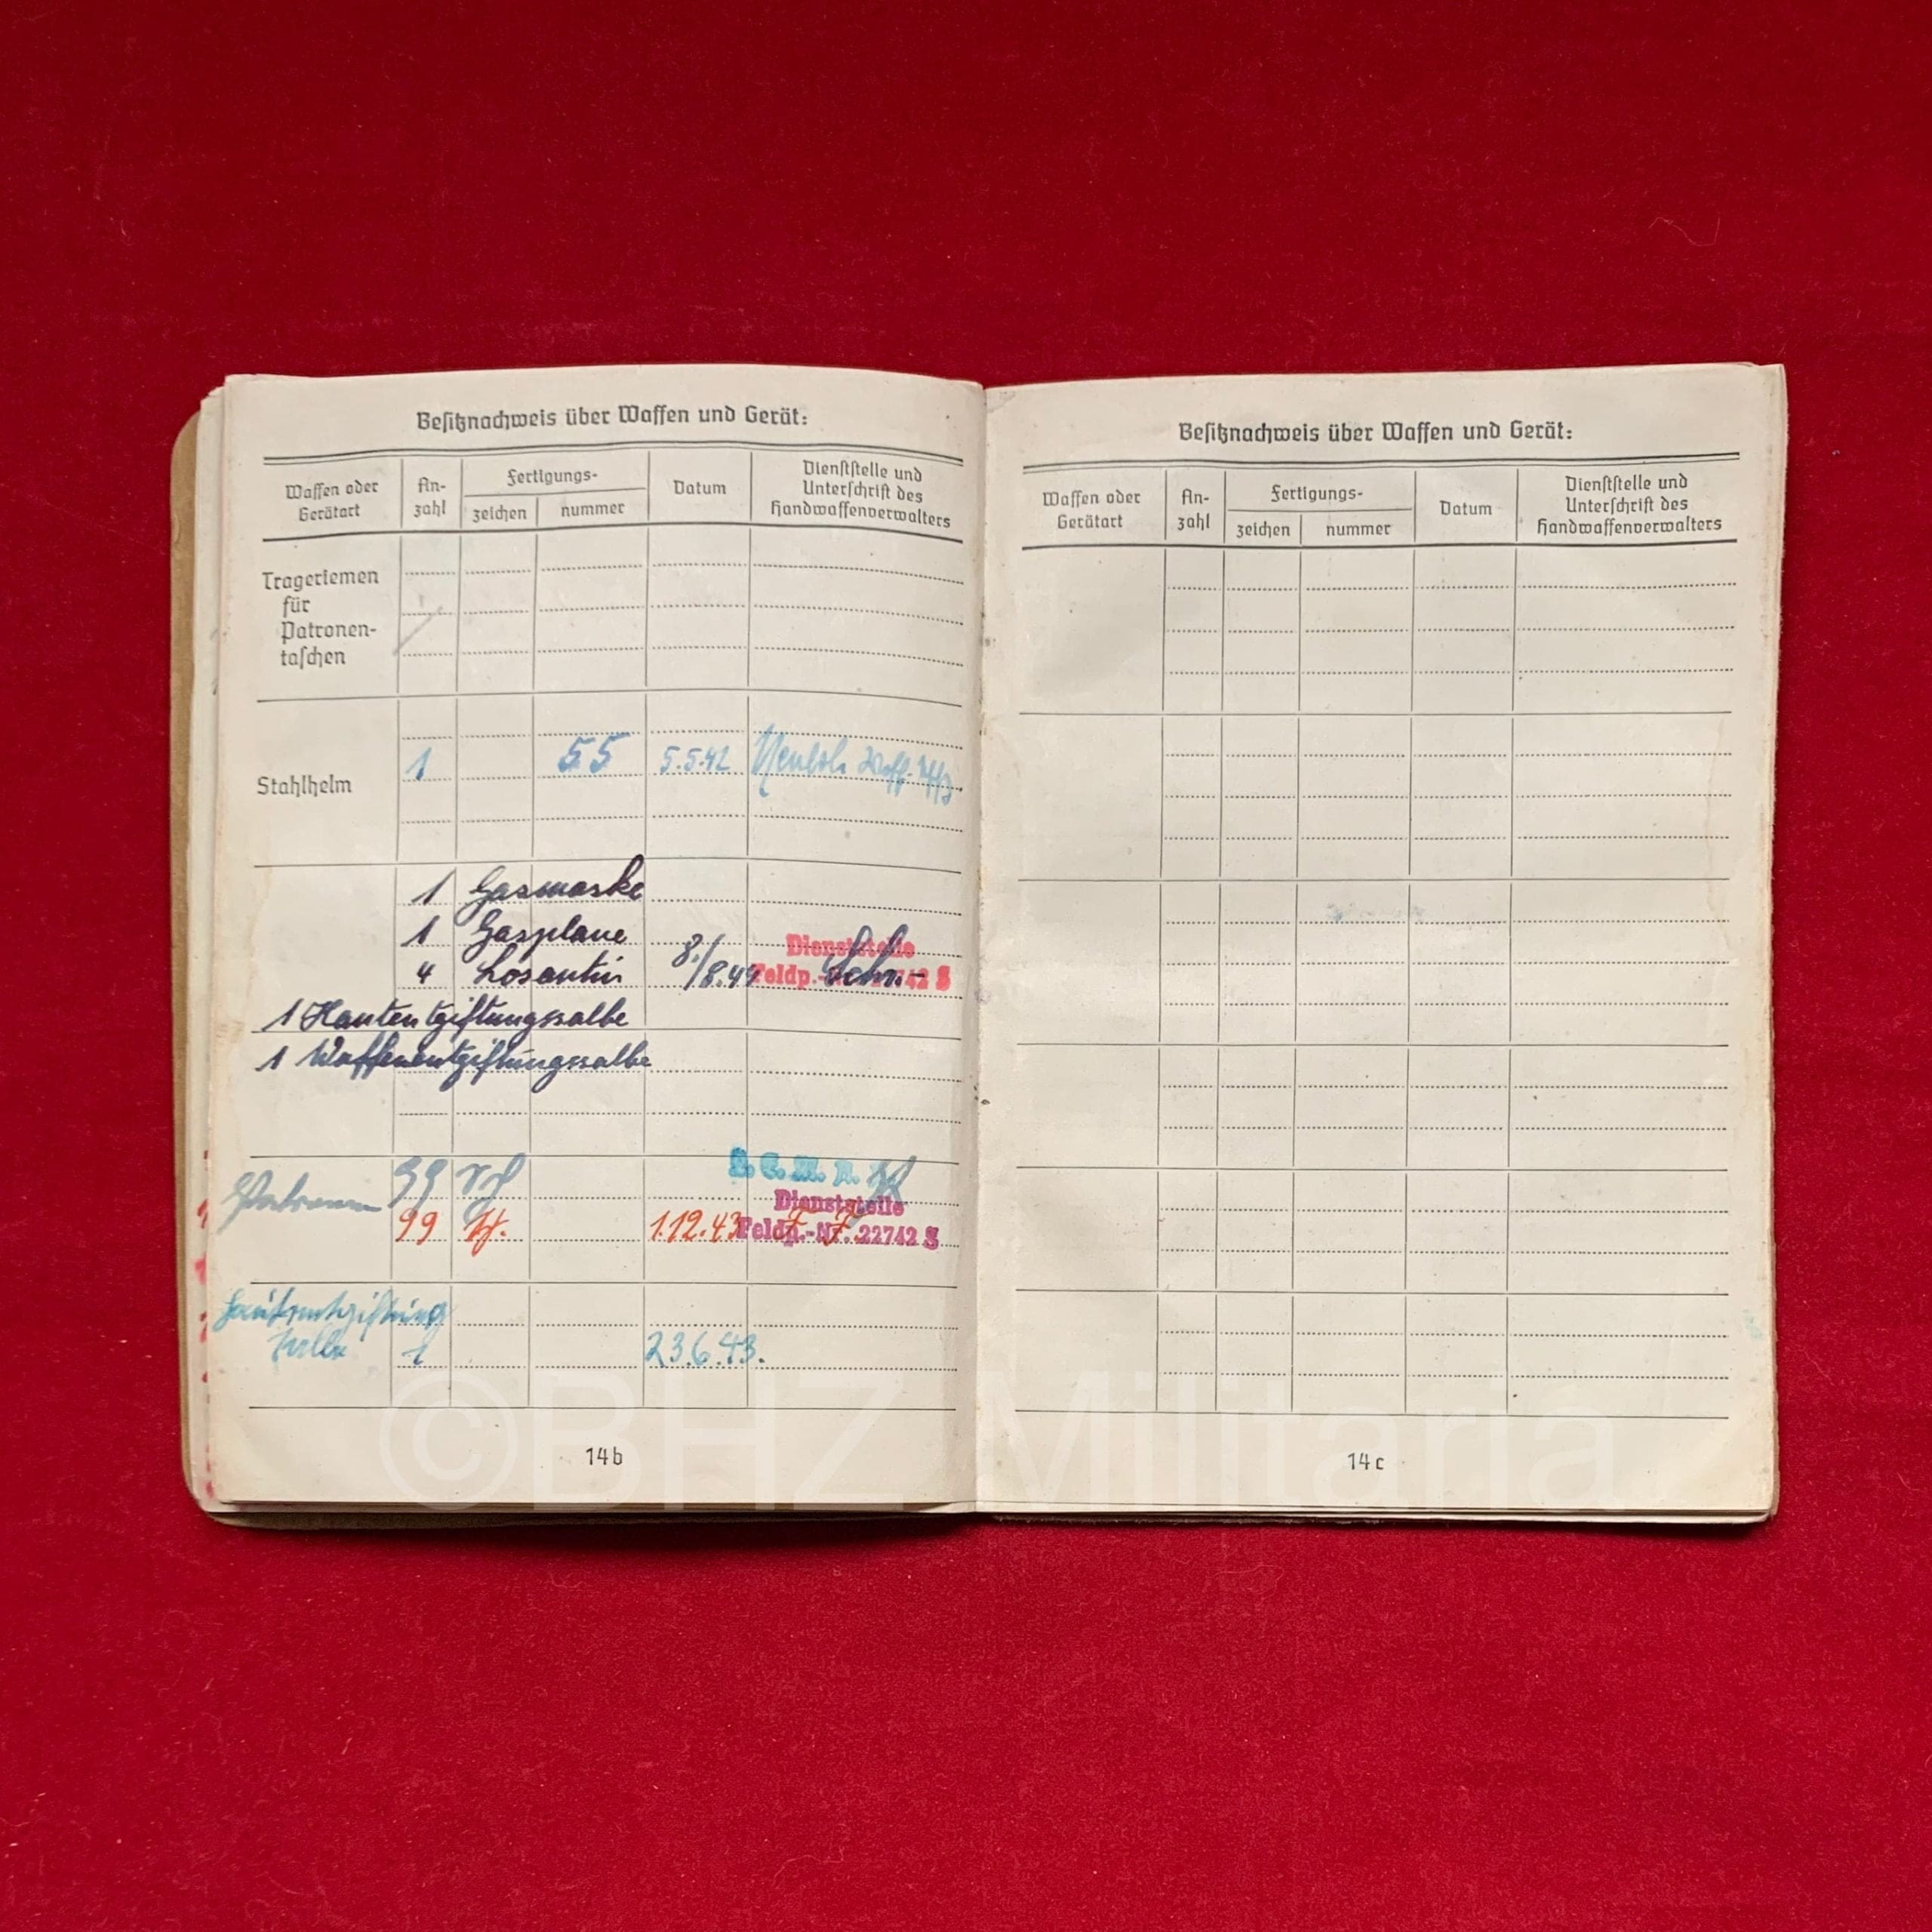 Besitznachweis über Waffen und Gerät:
Waffen oder Gerätart
An-zahl
Fertigungs-
zeichen
nummer
Datum
Dienststelle und Unterschrift des Handwaffenverwalters
Trageriemen
für
Patronen-
taschen
Stahlhelm 1 55 5.5.42
1 Gasmaske
1 Gasplane
4 Losantin 8./8.44
Dienststelle
Feldp.-
1 Hautentgiftungssalbe
1 Waffenentgiftungssalbe
Patronen 99
99 1.12.43
Dienststelle
Feldp.-Nr. 22742
Hautentgiftung
1 23.6.43.
14b
Besitznachweis über Waffen und Gerät:
Waffen oder Gerätart
An-zahl
Fertigungs-
zeichen
nummer
Datum
Dienststelle und Unterschrift des Handwaffenverwalters
14c
©BHZ Militaria